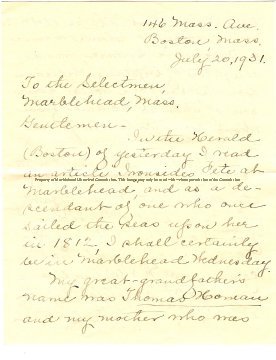 146 Mass. Ave.
Boston Mass.
July 20, 1931.
To the Selectmen,
Marblehead, Mass.
Gentlemen-
In the Herald
(Boston) of yesterday I read
an article Ironsides Fete at
Marblehead, and as a de-
scendant of one who once
sailed the seas upon her
in 1812, I shall certainly
be in Marblehead Wednesday.
My great-grandfather's
name was Thomas
and my mother who was